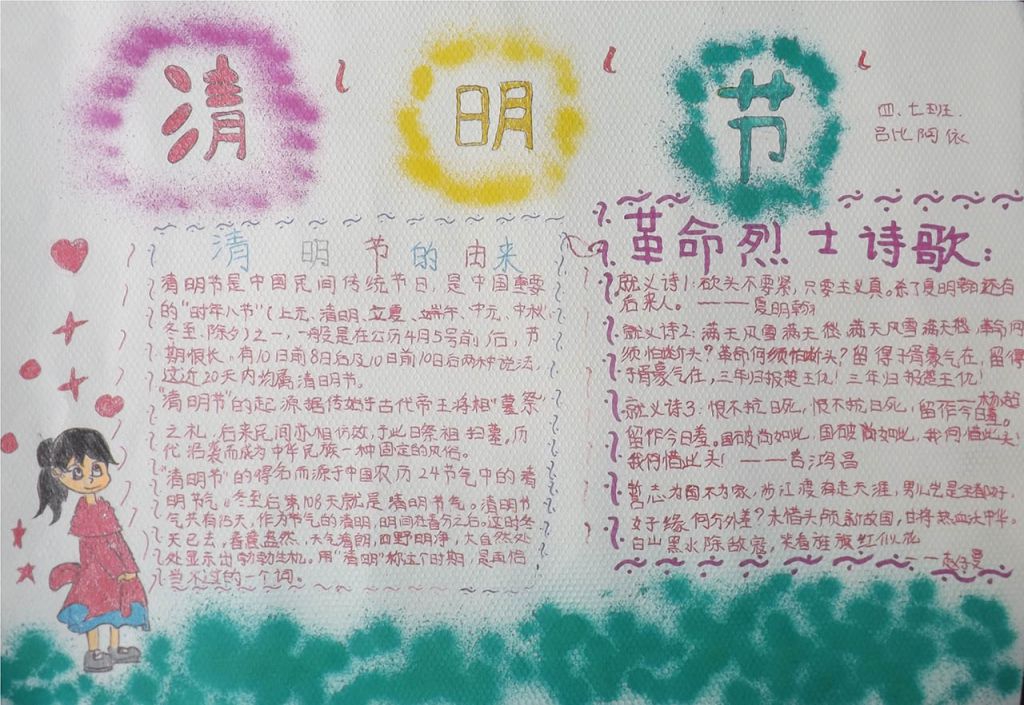 清明节
四.七班.
吕比阿依
清明节的由来
清明节是中国民间传统节日,是中国重要
的"时年八节"(上元、清明、立夏、端午、中元、中秋、
冬至、除夕)之一,一般是在公历4月5号前后,节
期很长,有10日前8日后及10日前10日后两种说法,
这近20天内均属清明节。
"清明节"的起源据传始于古代帝王将相"墓祭"
之礼,后来民间亦相仿效,于此日祭祖扫墓,历
代沿袭而成为中华民族一种固定的风俗。
"清明节"的得名而源于中国农历24节气中的清
明节气。冬至后第108天就是清明节气。清明节
气共有15天,作为节气的清明,时间在春分之后。这时冬
天已去,春意盎然,天气清朗,四野明净,大自然处
处显示出勃勃生机。用"清明"称这个时期,是再恰
当不过的一个词。
革命烈士诗歌:
就义诗1:砍头不要紧,只要主义真。杀了夏明翰,还有
后来人。———夏明翰
就义诗2:满天风雪满天愁,满天风雪满天愁,革命何
须怕断头?革命何须怕断头?留得子胥豪气在,留得
子胥豪气在,三年归报楚王仇!三年归报楚王仇!
——杨超
就义诗3:恨不抗日死,恨不抗日死,留作今日羞。
留作今日羞。国破尚如此,国破尚如此,我何惜此头!
我何惜此头!———吉鸿昌
誓志为国不为家,涉江渡海走天涯,男儿岂是全都好,
女子缘何分外差?未惜头颅新故国,甘将热血沃中华。
白山黑水除敌寇,笑看旌旗红似花
———赵一曼